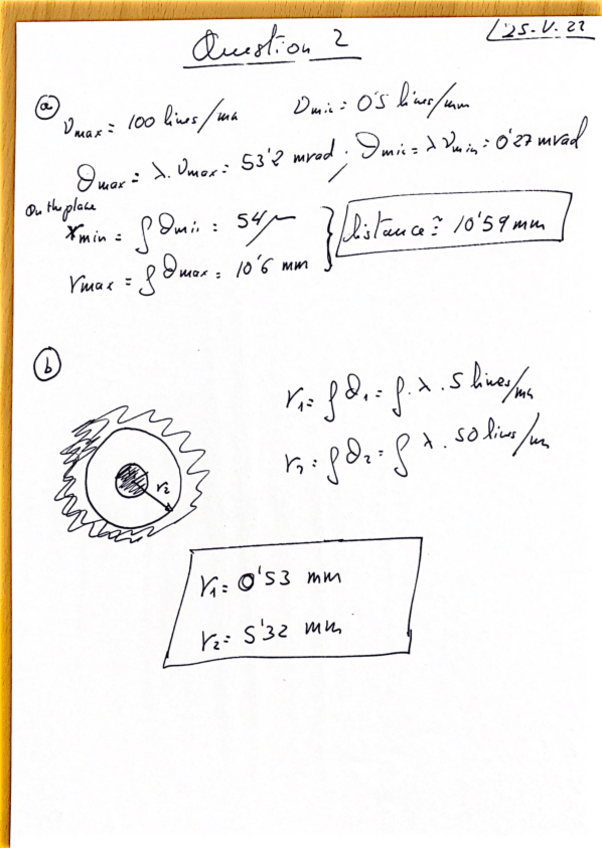 Question 2
25-V-22
a
ν max = 100 lines/mm ν min = 0'5 lines/mm
θ max = λ. ν max = 53'2 mrad ; θ min = λ ν min = 0'27 mrad
On the plane
r min = f θ min = 54 μ
r max = f θ max = 10'6 mm
Distance ≅ 10'59 mm
b
r₁ = f θ₁ = f. λ. 5 lines/mm
r₂ = f θ₂ = f λ. 50 lines/mm
r₂
r₁ = 0'53 mm
r₂ = 5'32 mm